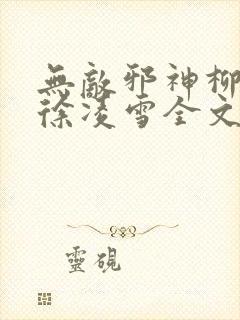 無敵邪神柳
徐凌雪全文
靈硯